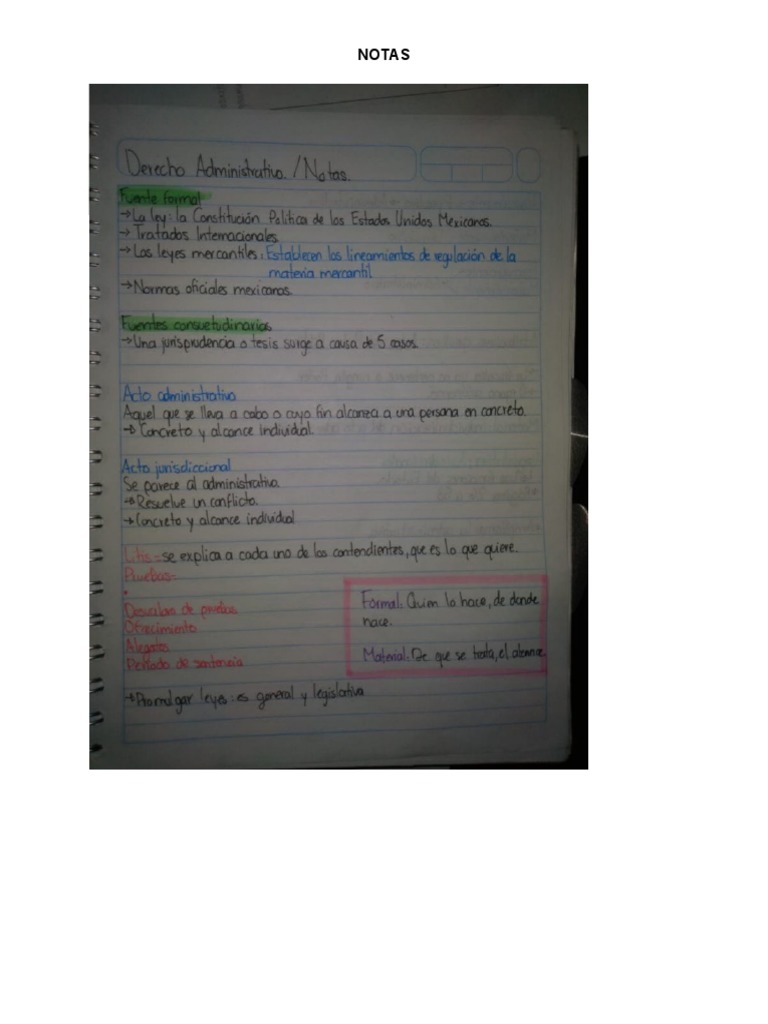 NOTAS
Derecho Administrativo. / Notas.
Fuente formal
→ La ley: la Constitución Política de los Estados Unidos Mexicanos.
→ Tratados Internacionales
→ Las leyes mercantiles: Establecen los lineamientos de regulación de la
materia mercantil
→ Normas oficiales mexicanas.
Fuentes consuetudinarias
→ Una jurisprudencia o tesis surge a causa de 5 casos.
Acto administrativo
Aquel que se lleva a cabo o cuyo fin alcanza a una persona en concreto.
→ Concreto y alcance individual.
Acto jurisdiccional
Se parece al administrativo.
→ Resuelve un conflicto.
→ Concreto y alcance individual
Litis = se explica a cada uno de los contendientes, que es lo que quiere.
Pruebas-
Desahogo de pruebas
Ofrecimiento
Alegatos
Periodo de sentencia
Formal: Quien lo hace, de donde
nace.
Material: De que se trata, el alcance.
→ Promulgar leyes: es general y legislativa